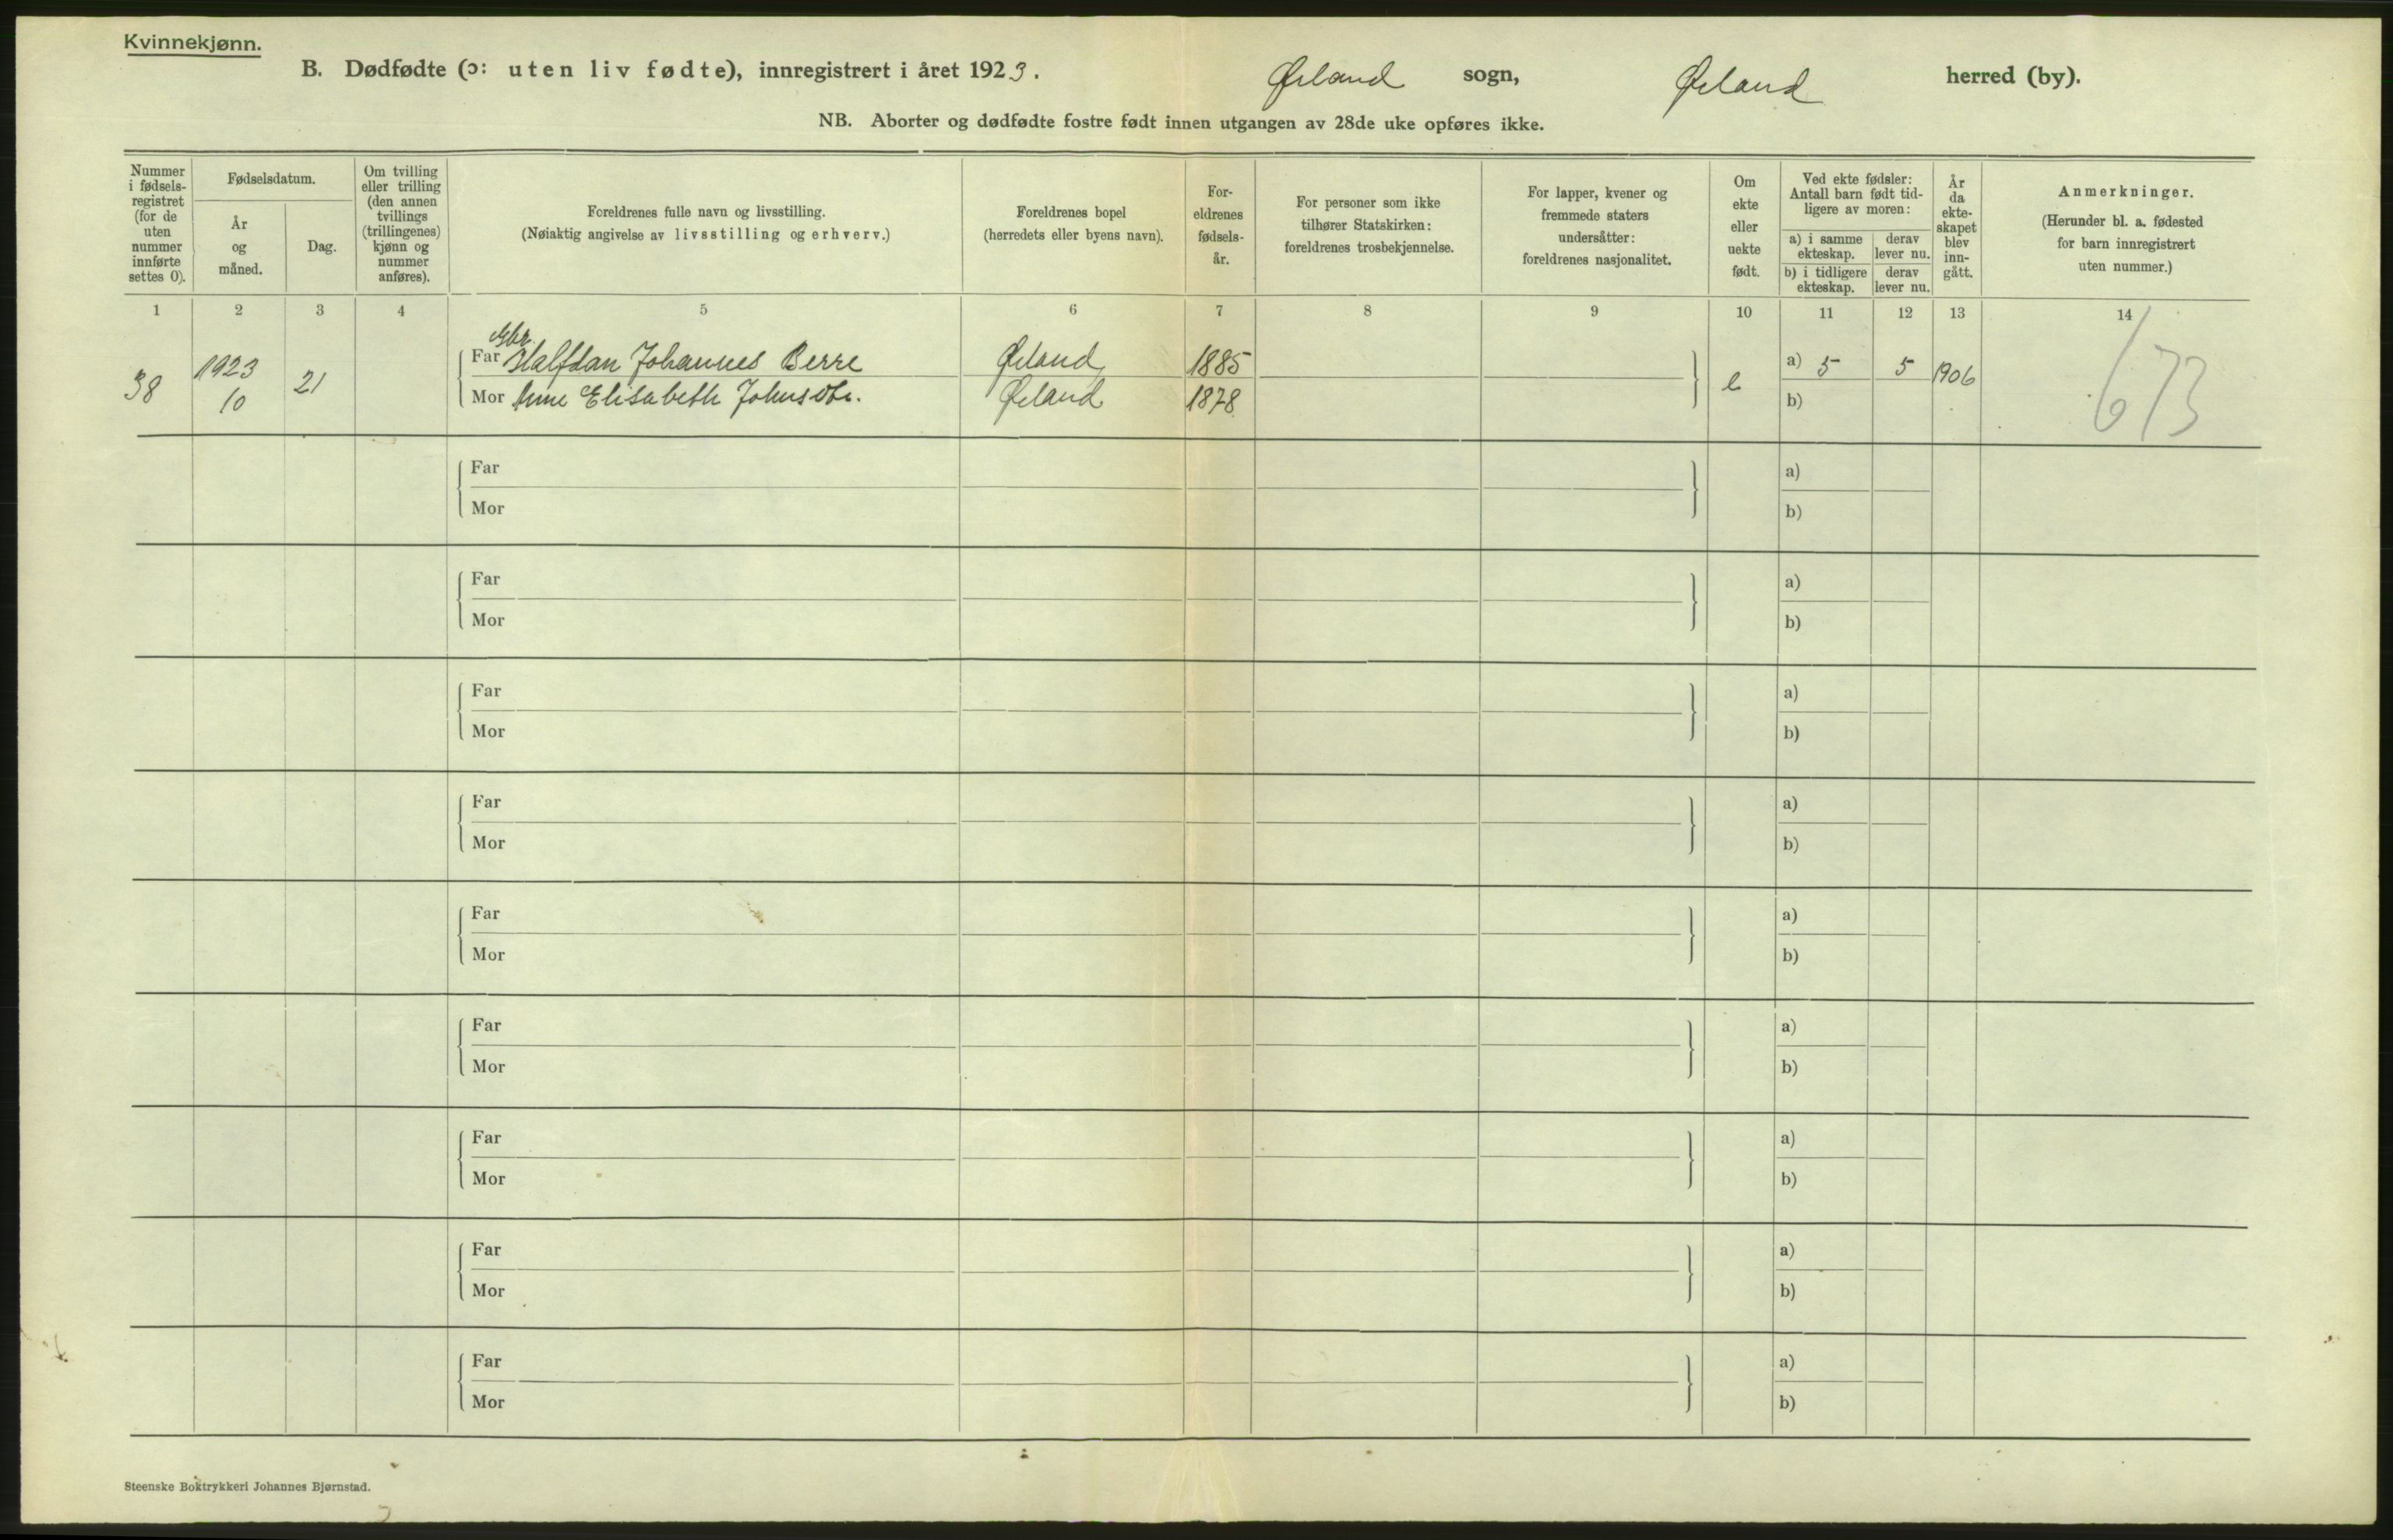 Kvinnekjønn.
B. Dødfødte (ɔ: uten liv fødte), innregistrert i året 1923. Ørland sogn, Ørland herred (by).
NB. Aborter og dødfødte fostre født innen utgangen av 28de uke opføres ikke.
Nummer i fødsels-registret (for de uten nummer innførte settes 0).
Fødselsdatum.
År og måned.
Dag.
Om tvilling eller trilling (den annen tvillings (trillingenes) kjønn og nummer anføres).
Foreldrenes fulle navn og livsstilling.
(Nøiaktig angivelse av livsstilling og erhverv.)
Foreldrenes bopel
(herredets eller byens navn).
For-eldrenes fødsels-år.
For personer som ikke tilhører Statskirken: foreldrenes trosbekjennelse.
For lapper, kvener og fremmede staters undersåtter: foreldrenes nasjonalitet.
Om ekte eller uekte født.
Ved ekte fødsler: Antall barn født tid-ligere av moren:
a) i samme ekteskap.
derav lever nu.
b) i tidligere ekteskap.
derav lever nu.
År da ekte-skapet blev inn-gått.
Anmerkninger.
(Herunder bl. a. fødested for barn innregistrert uten nummer.)
1 2 3 4 5 6 7 8 9 10 11 12 13 14
Gbr.
Far Halfdan Johannes Berre Ørland 1885 a) 5 5 1906
38 1923 10 21 e 673
Mor Anne Elisabeth Johnsdtr. Ørland 1878 b)
Far a)
Mor b)
Far a)
Mor b)
Far a)
Mor b)
Far a)
Mor b)
Far a)
Mor b)
Far a)
Mor b)
Far a)
Mor b)
Far a)
Mor b)
Far a)
Mor b)
Steenske Boktrykkeri Johannes Bjørnstad.